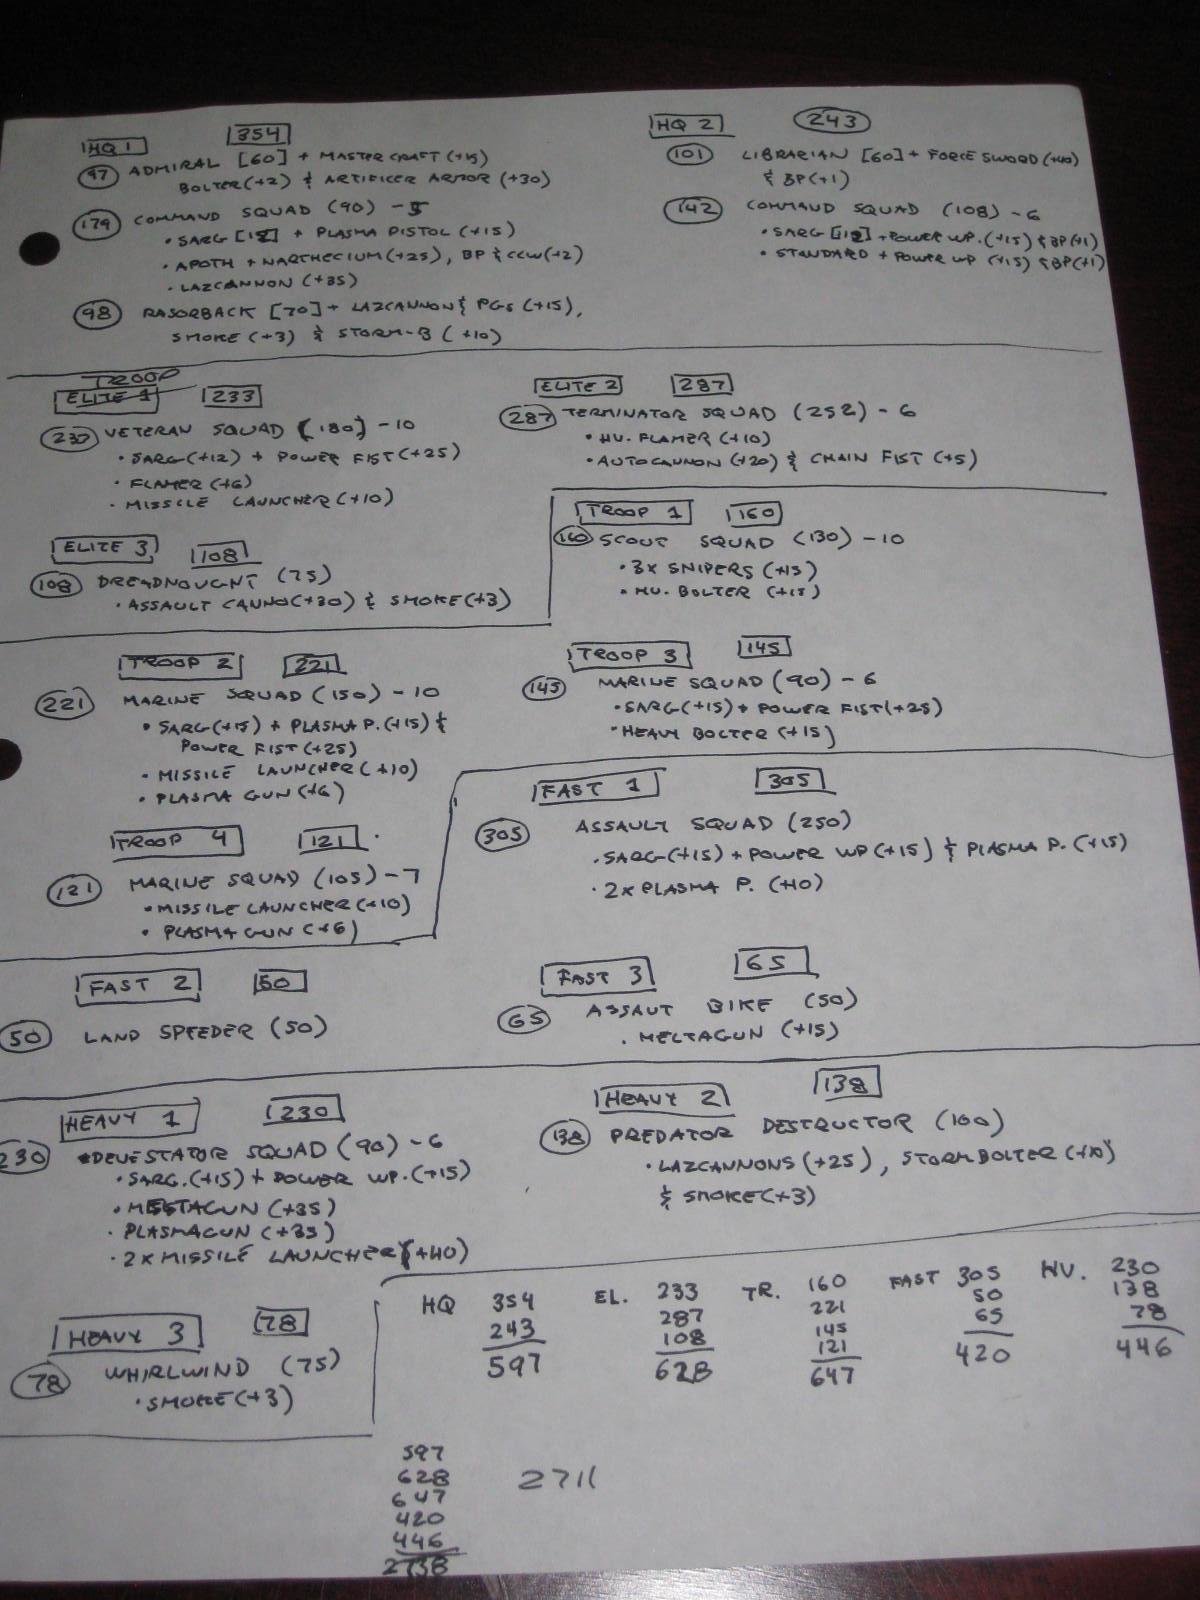 HQ 1 354
97 ADMIRAL [60] + MASTER CRAFT (+15)
BOLTER (+2) & ARTIFICER ARMOR (+30)
179 COMMAND SQUAD (90) - 5
• SARG [12] + PLASMA PISTOL (+15)
• APOTH + NARTHECIUM (+25), BP & CCW (+2)
• LAZCANNON (+35)
98 RASORBACK [70] + LAZCANNON & PGS (+15),
SMOKE (+3) & STORM-B (+10)
HQ 2 243
101 LIBRARIAN [60] + FORCE SWORD (+40)
& BP (+1)
142 COMMAND SQUAD (108) - 6
• SARG [12] + POWER WP. (+15) & BP (+1)
• STANDARD + POWER WP (+15) & BP (+1)
TROOP
ELITE 1 233
233 VETERAN SQUAD (180) - 10
• SARG (+12) + POWER FIST (+25)
• FLAMER (+6)
• MISSILE LAUNCHER (+10)
ELITE 2 287
287 TERMINATOR SQUAD (252) - 6
• HV. FLAMER (+10)
• AUTOCANNON (+20) & CHAIN FIST (+5)
ELITE 3 108
108 DREADNOUGNT (75)
• ASSAULT CANNO (+30) & SMOKE (+3)
TROOP 1 160
160 SCOUT SQUAD (130) - 10
• 3X SNIPERS (+15)
• HV. BOLTER (+15)
TROOP 2 221
221 MARINE SQUAD (150) - 10
• SARG (+15) + PLASMA P. (+15) &
POWER FIST (+25)
• MISSILE LAUNCHER (+10)
• PLASMA GUN (+6)
TROOP 3 145
145 MARINE SQUAD (90) - 6
• SARG (+15) + POWER FIST (+25)
• HEAVY BOLTER (+15)
TROOP 4 121
121 MARINE SQUAD (105) - 7
• MISSILE LAUNCHER (+10)
• PLASMA GUN (+6)
FAST 1 305
305 ASSAULT SQUAD (250)
• SARG (+15) + POWER WP (+15) & PLASMA P. (+15)
• 2X PLASMA P. (+10)
FAST 2 50
50 LAND SPEEDER (50)
FAST 3 65
65 ASSAUT BIKE (50)
• MELTAGUN (+15)
HEAVY 1 230
230 DEVESTATOR SQUAD (90) - 6
• SARG. (+15) + POWER WP. (+15)
• MELTAGUN (+35)
• PLASMAGUN (+35)
• 2X MISSILE LAUNCHER (+40)
HEAVY 2 138
138 PREDATOR DESTRUCTOR (100)
• LAZCANNONS (+25), STORMBOLTER (+10)
& SMOKE (+3)
HEAVY 3 78
78 WHIRLWIND (75)
• SMOKE (+3)
HQ 354
243
597
EL. 233
287
108
628
TR. 160
221
145
121
647
FAST 305
50
65
420
HV. 230
138
78
446
597
628
647
420
446
2738
2711